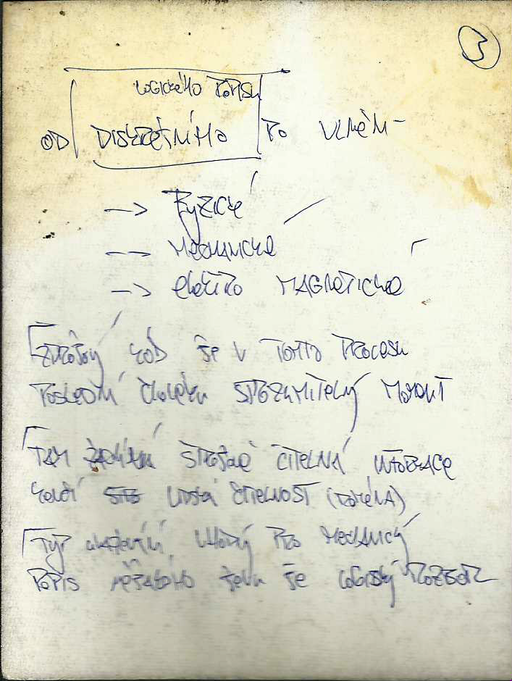 3
LOGICKÉHO POPISU
OD DISKRÉTNÍHO PO VLNĚN-
-> FYZICKÉ
-> MECHANICKÉ
-> ELEKTRO MAGNETICKÉ
ZDROJOVÝ KÓD JE V TOMTO PROCESU
POSLEDNÍ ČLOVĚKU SROZUMITELNÝ MOMENT
TAM STROJNĚ ČITELNÁ INFORMACE
KONČÍ LIDSKÁ ČITELNOST
TYP VHODNÝ PRO MECHANICKÝ
POPIS JEVU JE LOGICKÝ ROZBOR